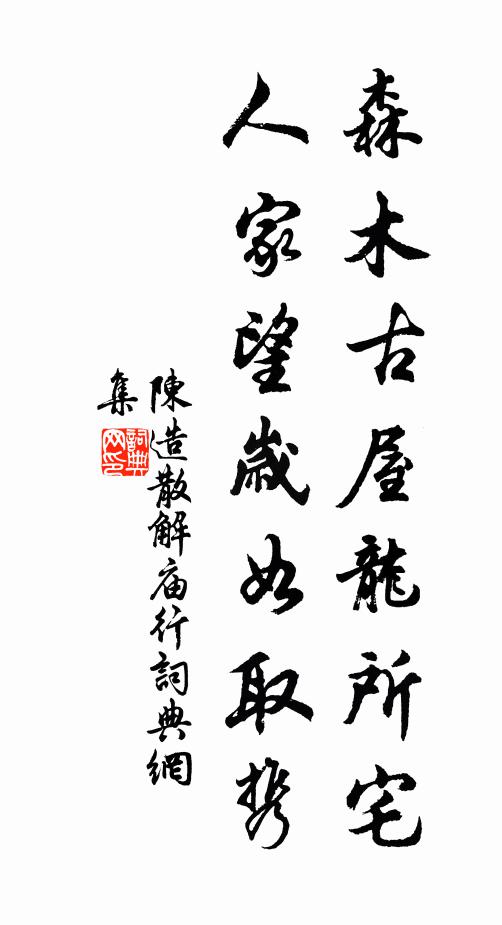 森木古屋龍所宅
人家望歲如取携
陳造散解庙行詞典網
集
詞典
网印